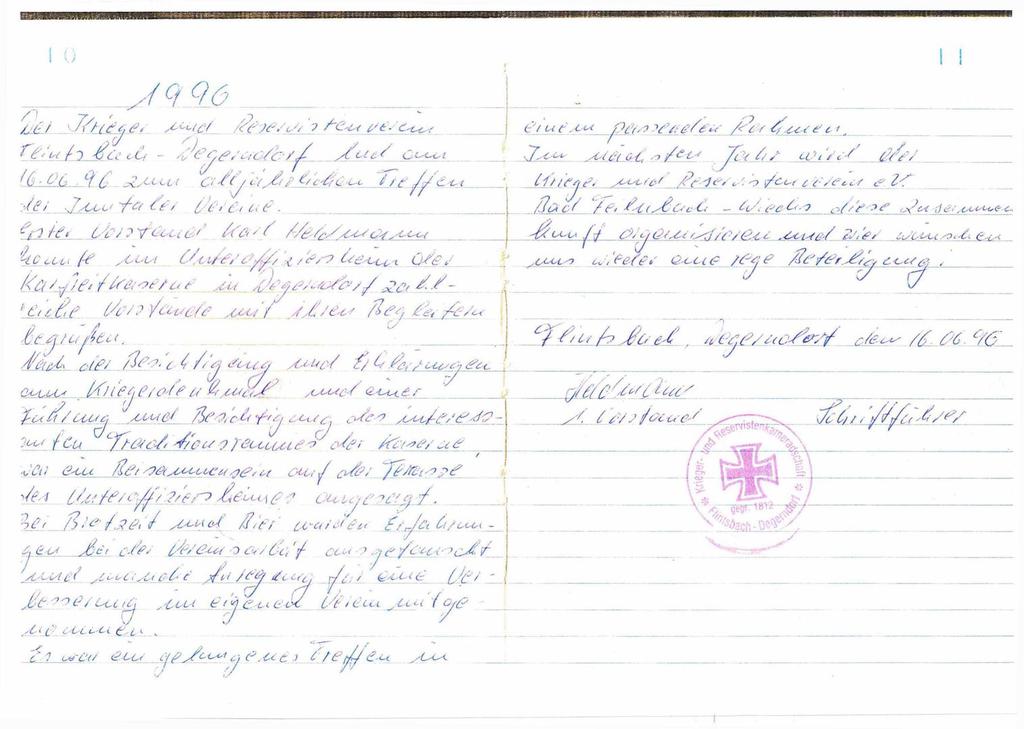 10
1996
Der Krieger und Reservistenverein
Flintsbach - Degerndorf lud am
16.06.96 zum alljährlichen Treffen
der Inntaler Vereine.
Erster Vorstand Karl Heldmann
konnte im Unteroffiziersheim der
Karfreitkaserne in Degerndorf zahl-
reiche Vorstände mit ihren Begleitern
begrüßen.
Nach der Besichtigung und Erklärungen
am Kriegerdenkmal und einer
Führung und Besichtigung des interess-
anten Traditionsraumes der Kaserne,
war ein Beisammensein auf der Terasse
des Unteroffiziersheimes angesagt.
Bei Brotzeit und Bier wurden Erfahrun-
gen bei der Vereinsarbeit ausgetauscht
und manche Anregung für eine Ver-
besserung im eigenen Verein mitge-
nommen.
Es war ein gelungenes Treffen in
11
einem passenden Rahmen.
Im nächsten Jahr wird der
Krieger und Reservistenverein eV.
Bad Feilnbach - Wiechs diese Zusammen
kunft organisieren und wir wünschen
uns wieder eine rege Beteiligung.
Flintsbach, Degerndorf den 16.06.96
Heldmann
1. Vorstand Schriftführer
Krieger- und Reservistenkameradschaft
gegr. 1812
Flintsbach - Degerndorf